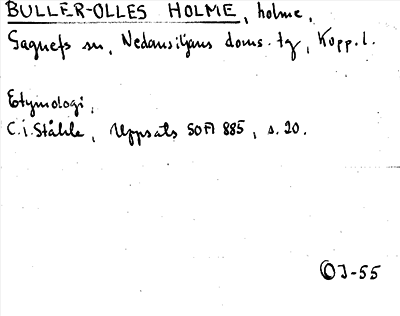 BULLER-OLLES HOLME, holme,
Sagnefs sn, Nedansiljans doms. tg, Kopp. l.
Etymologi,
C. I. Ståhle, Uppsats SOFI 885, s. 20.
OJ-55